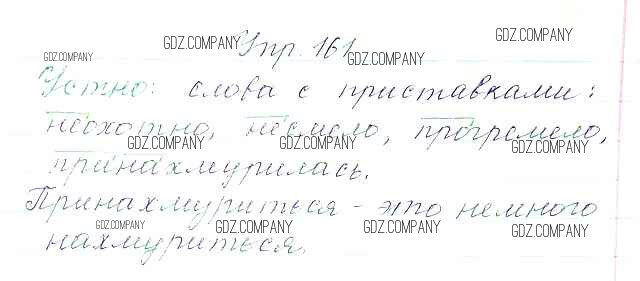 Упр. 161
Устно: слова с приставками:
неохотно, несмело, прогремело,
принахмурилась.
Принахмуриться - это немного
нахмуриться.
GDZ.COMPANY
GDZ.COMPANY
GDZ.COMPANY
GDZ.COMPANY
GDZ.COMPANY
GDZ.COMPANY
GDZ.COMPANY
GDZ.COMPANY
GDZ.COMPANY
GDZ.COMPANY
GDZ.COMPANY